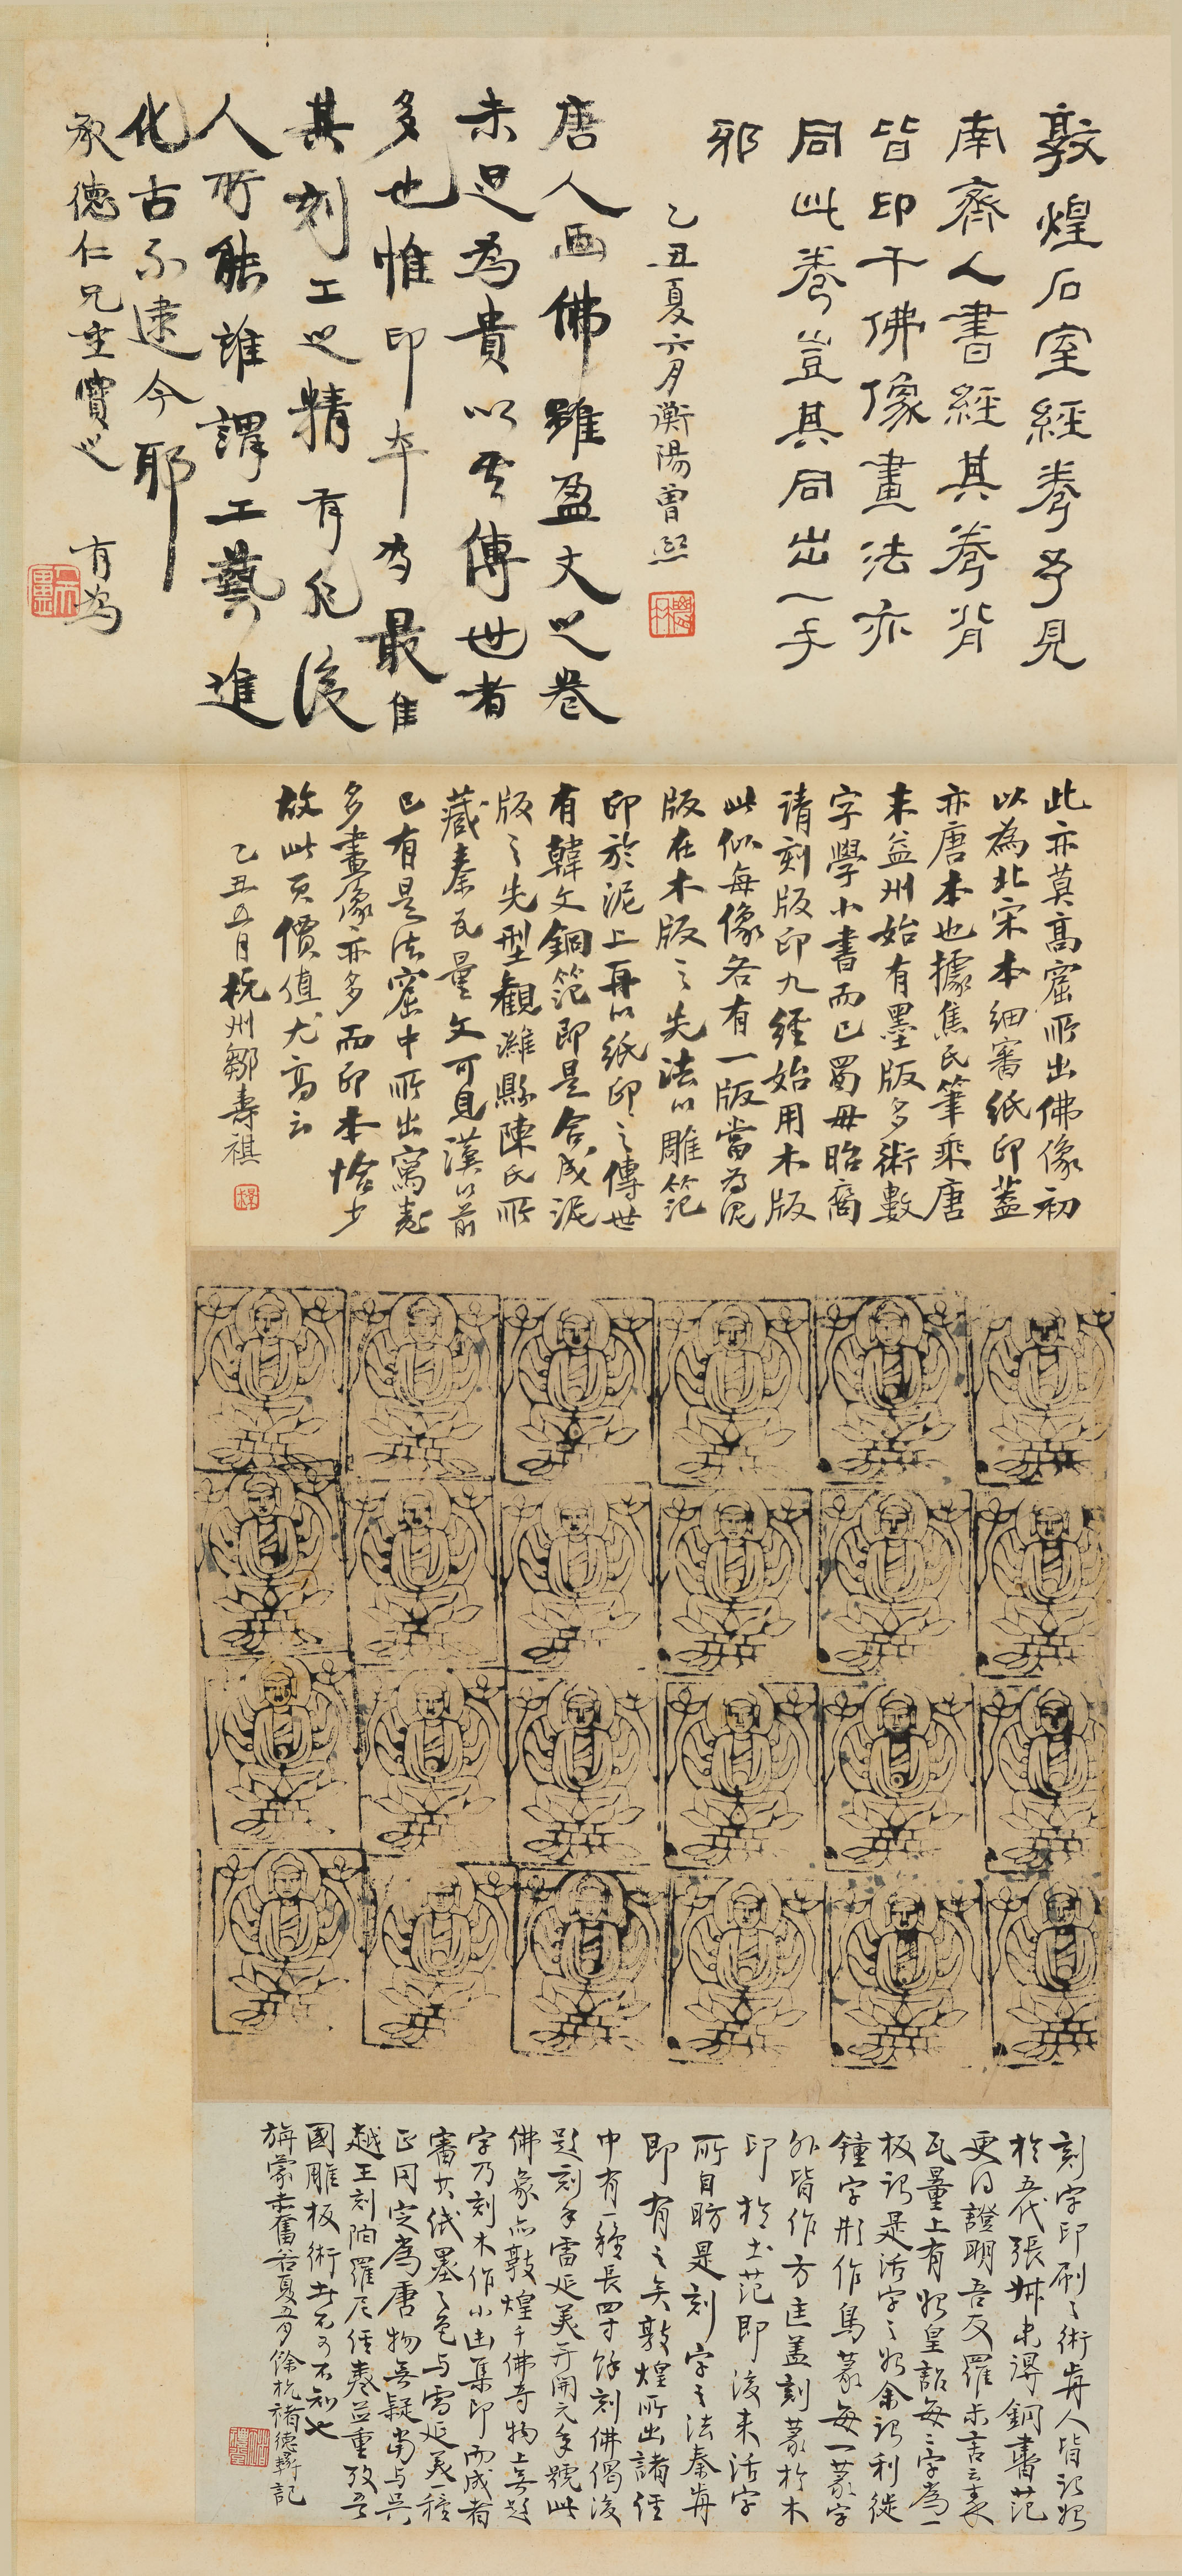 敦煌石室經卷多見
南齊人書經其卷背
皆印千佛像畫法亦
同此卷豈其同出一手
邪
乙丑夏六月衡陽曾熙
唐人画佛雖盈丈之卷
未足為貴以其傳世者
多也惟印本為最佳
其刻工之精有非後
人所能誰謂工藝進
化古不逮今耶
承德仁兄生寶之
有為
此亦莫高窟所出佛像初
以為北宋本細審紙印蓋
亦唐本也據焦氏筆乘唐
末益州始有墨版多術數
字學小書而已蜀毋昭裔
請刻版印九經始用木版
此似每像各有一版當為泥
版在木版之先法以雕笵
印於泥上再以紙印之傳世
有韓文銅笵即是合成泥
版之先型觀濰縣陳氏所
藏秦瓦量文可見漢以前
已有是法窟中所出寫卷
多畫像亦多而印本恰少
故此頁價值尤高云
乙丑五月杭州鄒壽祺
刻字印刷之術前人皆謂始
於五代張叔未得銅書范
更以證明吾友羅未言云秦
瓦量上有始皇詔每二字為一
板謂是活字之始余謂利徙
鐘字形作鳥篆每一篆字
外皆作方匡蓋刻篆於木
印於土范即後來活字
所自昉是刻字之法秦前
即有之矣敦煌所出諸經
中有一種長四寸餘刻佛偈後
題刻手雷延美并開元年號此
佛象亦敦煌千佛寺物上無題
字乃刻木作小由集印而成者
審其紙墨之色與雷延美一種
正同定為唐物無疑當與吳
越王刻陀羅尼經卷並重攷吾
國雕板術者不可不知也
旃蒙赤奮若夏五月餘杭褚德彝記